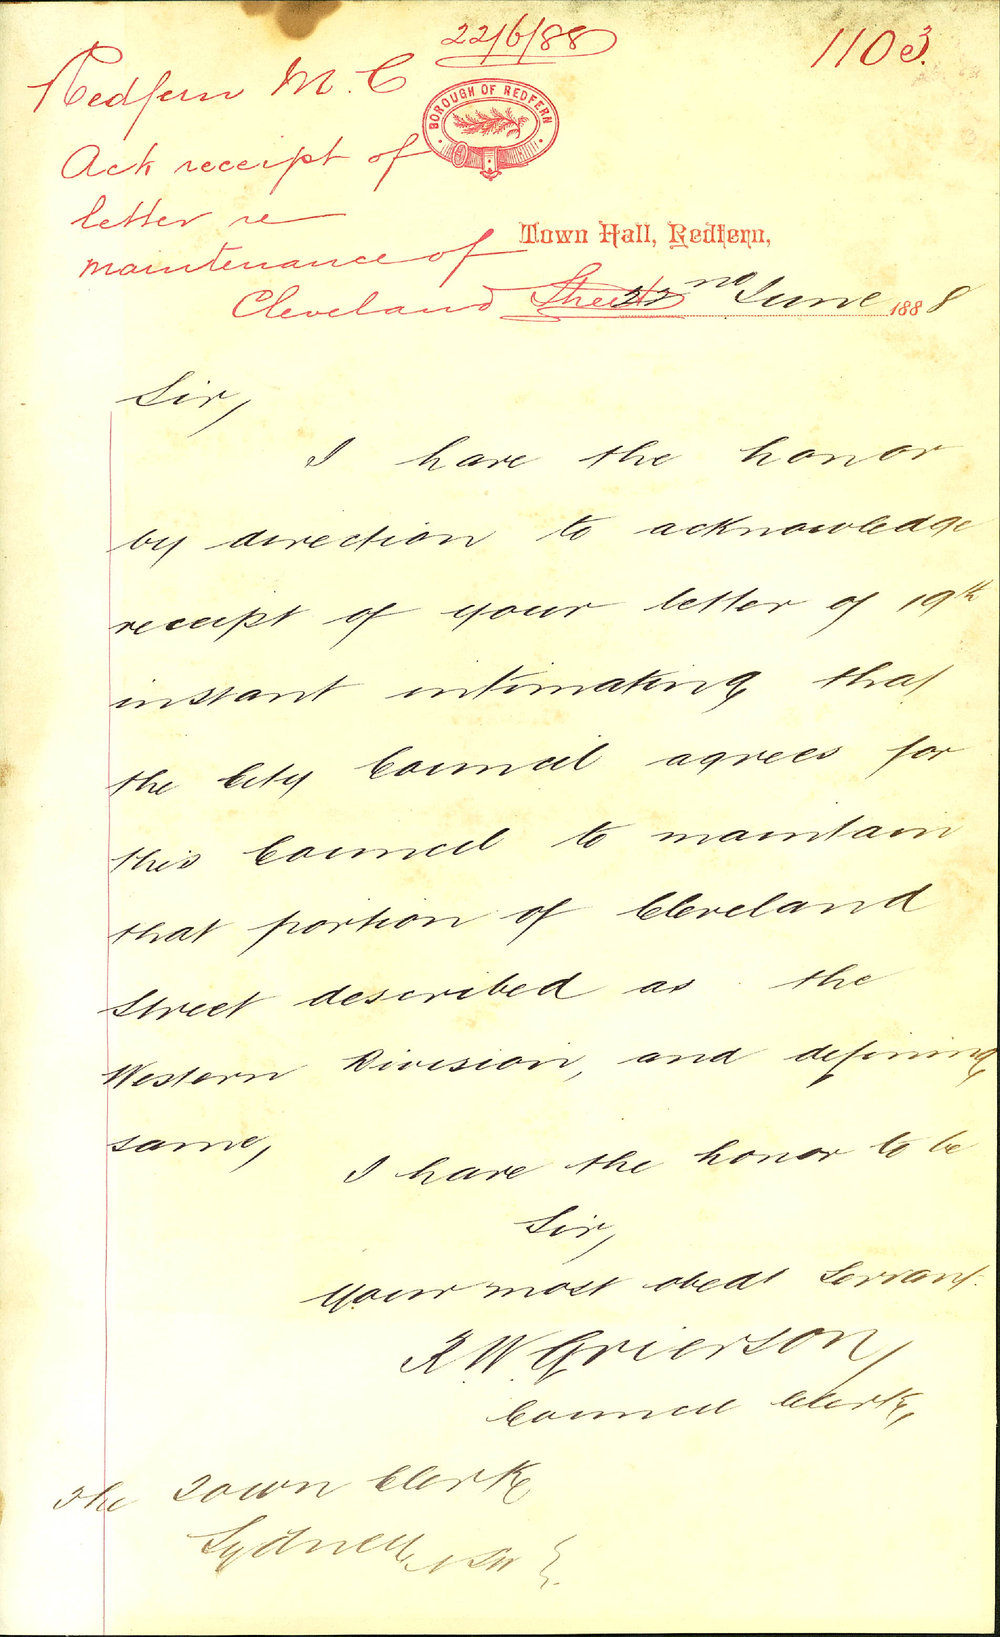 22/6/88
1103.
Redfern M. C
BOROUGH OF REDFERN
Ack receipt of
letter re
maintenance of
Cleveland Street
Town Hall, Redfern,
22nd June 1888
Sir,
I have the honor
by direction to acknowledge
receipt of your letter of 19th
instant intimating that
the City Council agrees for
this Council to maintain
that portion of Cleveland
Street described as the
Western Division, and defining
same,
I have the honor to be
Sir,
Your most obedt Servant.
R W Grierson,
Council Clerk,
The Town Clerk
Sydney, NSW